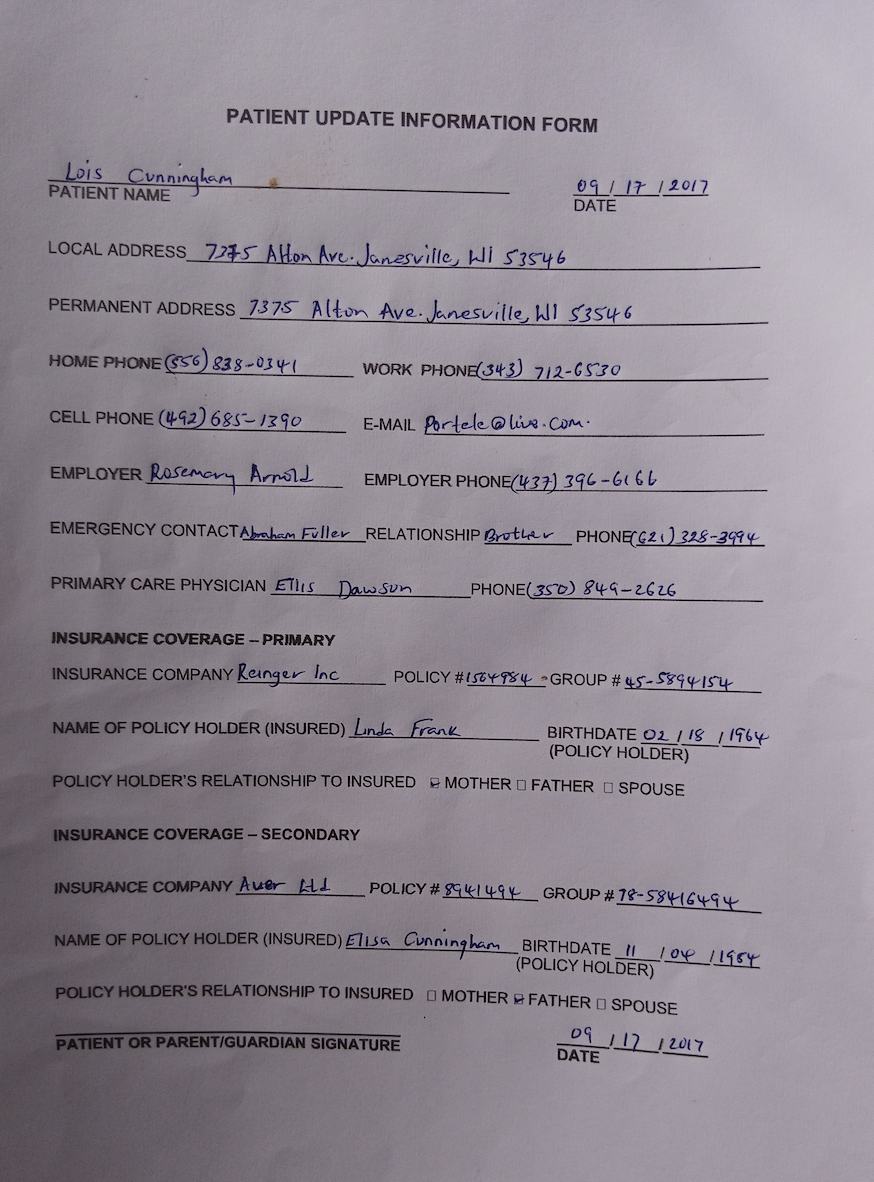 PATIENT UPDATE INFORMATION FORM
Lois Cunningham 09 / 17 / 2017
PATIENT NAME DATE
LOCAL ADDRESS 7375 Alton Ave. Janesville, WI 53546
PERMANENT ADDRESS 7375 Alton Ave. Janesville, WI 53546
HOME PHONE (556) 838-0341 WORK PHONE (343) 712-6530
CELL PHONE (492) 685-1390 E-MAIL Portele@live.com.
EMPLOYER Rosemary Arnold EMPLOYER PHONE (437) 396-6166
EMERGENCY CONTACT Abraham Fuller RELATIONSHIP Brother PHONE (621) 328-3994
PRIMARY CARE PHYSICIAN Ellis Dawson PHONE (350) 849-2626
INSURANCE COVERAGE – PRIMARY
INSURANCE COMPANY Reinger Inc POLICY # 1564984 GROUP # 45-5894154
NAME OF POLICY HOLDER (INSURED) Linda Frank BIRTHDATE 02 / 18 / 1964
(POLICY HOLDER)
POLICY HOLDER'S RELATIONSHIP TO INSURED ☑ MOTHER ☐ FATHER ☐ SPOUSE
INSURANCE COVERAGE – SECONDARY
INSURANCE COMPANY Auer Ltd POLICY # 8941494 GROUP # 78-58416494
NAME OF POLICY HOLDER (INSURED) Elisa Cunningham BIRTHDATE 11 / 04 / 1954
(POLICY HOLDER)
POLICY HOLDER'S RELATIONSHIP TO INSURED ☐ MOTHER ☑ FATHER ☐ SPOUSE
09 / 17 / 2017
PATIENT OR PARENT/GUARDIAN SIGNATURE DATE